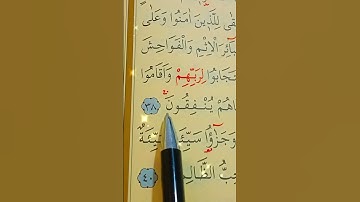 قَى لِلَّذِينَ اٰمَنُوا وَعَلٰى
بَٓائِرَ الْاِثْمِ وَالْفَوَاحِشَ
تَجَابُوا لِرَبِّهِمْ وَاَقَامُوا
نَاهُمْ يُنْفِقُونَ ﴿٣٨﴾
وَجَزٰٓؤُا سَيِّئَةٍ سَيِّئَةٌ
حِبُّ الظَّالِمٖينَ ﴿٤٠﴾